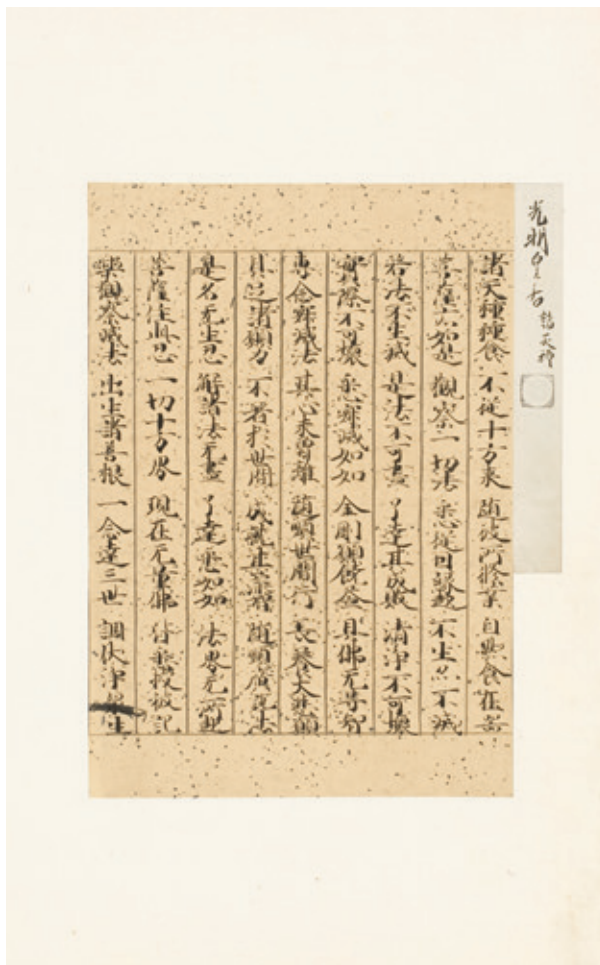 光明皇后 天禄
諸天種種食 不從十方來 隨彼所修業 自然食在器
菩薩亦如是 觀察一切法 悉從因緣起 不生亦不滅
若法不生滅 是法不可盡 了達其成敗 清淨不可壞
實際不可壞 悉寂滅如如 金剛 饒益 具佛无等智
專念寂滅法 其心未曾離 隨順世間行 長養大悲
具足諸願力 不著於世間 成就 隨順廣 法
是名无生忍 解諸法无盡 了達悉如如 法界无所
菩薩住此忍 一切十方界 現在无量佛 授彼記
樂觀察滅法 出生諸善根 一念達三世 調伏淨眾生